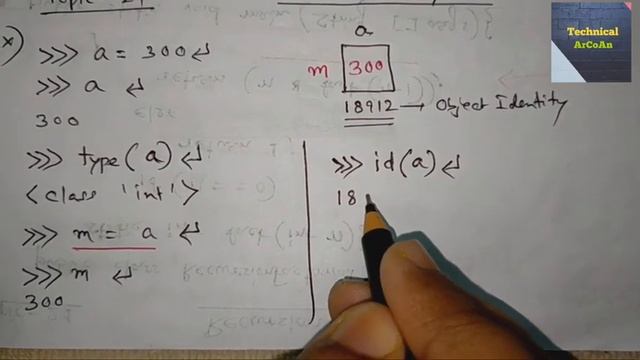 >>> a = 300 ↵
>>> a ↵
300
>>> type(a) ↵
<class 'int'>
>>> m = a ↵
>>> m ↵
300
a
m 300
18912 → Object Identity
>>> id(a) ↵
18
Technical
ArCoAn